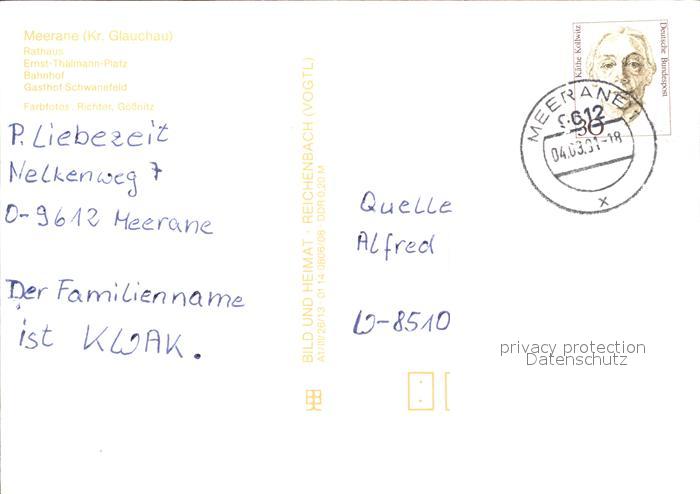 Meerane (Kr. Glauchau)
Rathaus
Ernst-Thälmann-Platz
Bahnhof
Gasthof Schwanefeld
Farbfotos: Richter, Gößnitz
P. Liebezeit
Nelkenweg 7
O-9612 Meerane
Der Familienname
ist KWAK.
BILD UND HEIMAT · REICHENBACH (VOGTL)
A1/III/26/13 01 14 0806/08 DDR 0,20 M
Käthe Kollwitz
Deutsche Bundespost
30
MEERANE 1
9612
04.03.91-18
x
Quelle
Alfred
W-8510
privacy protection
Datenschutz